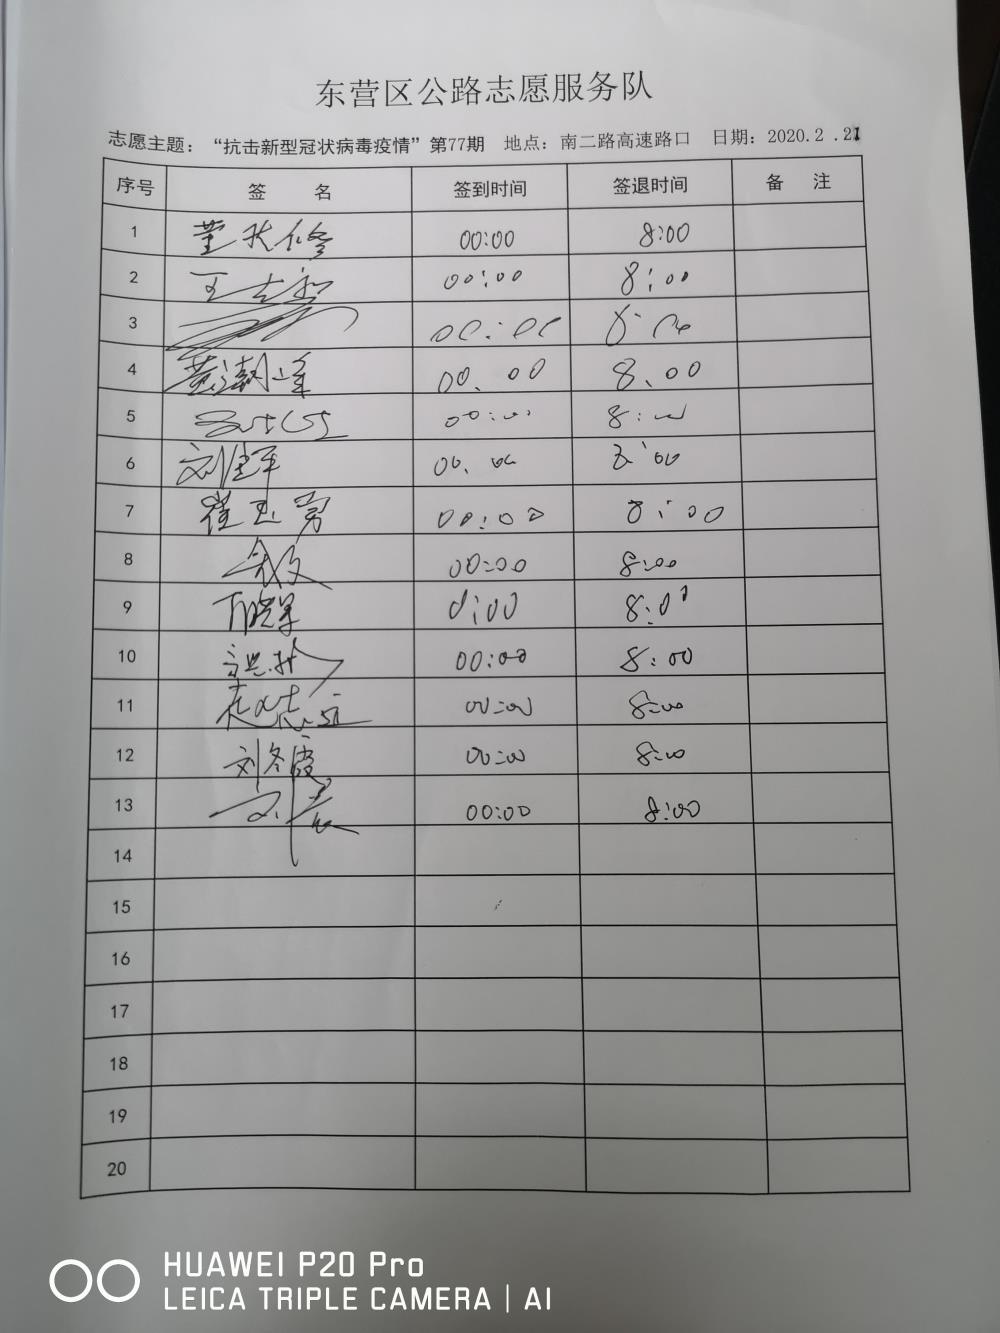 东营区公路志愿服务队
志愿主题：“抗击新型冠状病毒疫情”第77期 地点：南二路高速路口 日期：2020.2.21
序号 签 名 签到时间 签退时间 备 注
1 00:00 8:00
2 王志 00:00 8:00
3 00:00 8:00
4 黄 峰 00.00 8.00
5 00:00 8:00
6 刘 军 00.00 8:00
7 崔玉 00:00 8:00
8 00:00 8:00
9 0:00 8:00
10 00:00 8:00
11 00:00 8:00
12 刘冬霞 00:00 8:00
13 00:00 8:00
14
15
16
17
18
19
20
HUAWEI P20 Pro
LEICA TRIPLE CAMERA | AI